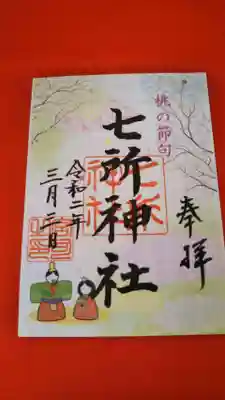 桃の節句
奉拝
七所神社
七所神社
令和二年
三月三日